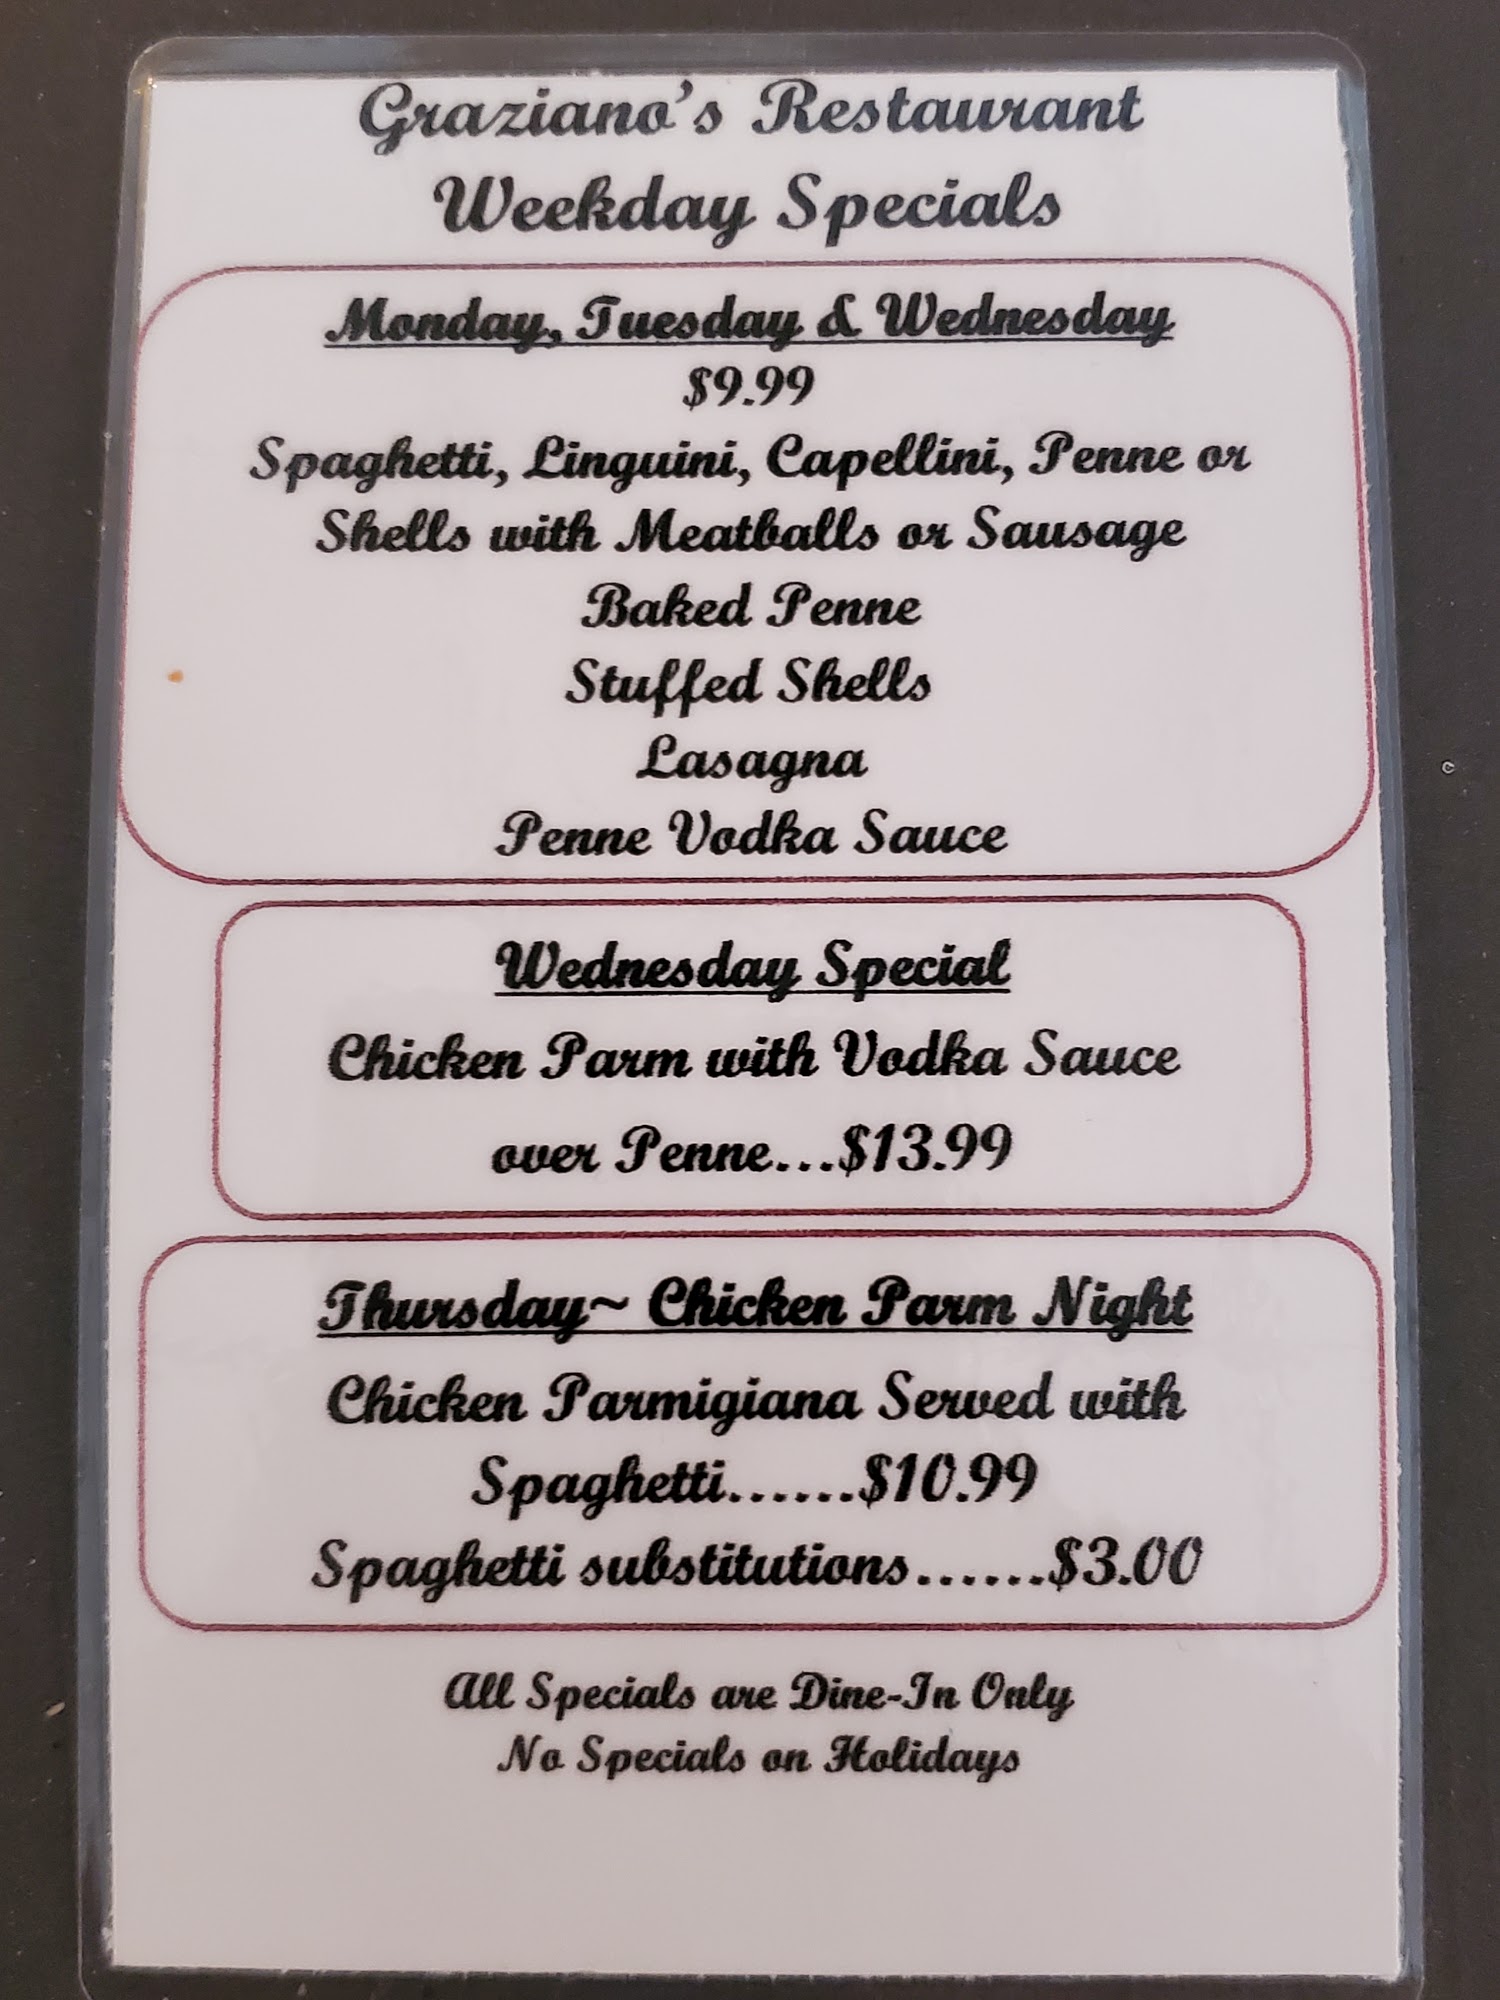 Graziano's Restaurant
Weekday Specials
Monday, Tuesday & Wednesday
$9.99
Spaghetti, Linguini, Capellini, Penne or
Shells with Meatballs or Sausage
Baked Penne
Stuffed Shells
Lasagna
Penne Vodka Sauce
Wednesday Special
Chicken Parm with Vodka Sauce
over Penne...$13.99
Thursday~ Chicken Parm Night
Chicken Parmigiana Served with
Spaghetti......$10.99
Spaghetti substitutions......$3.00
All Specials are Dine-In Only
No Specials on Holidays